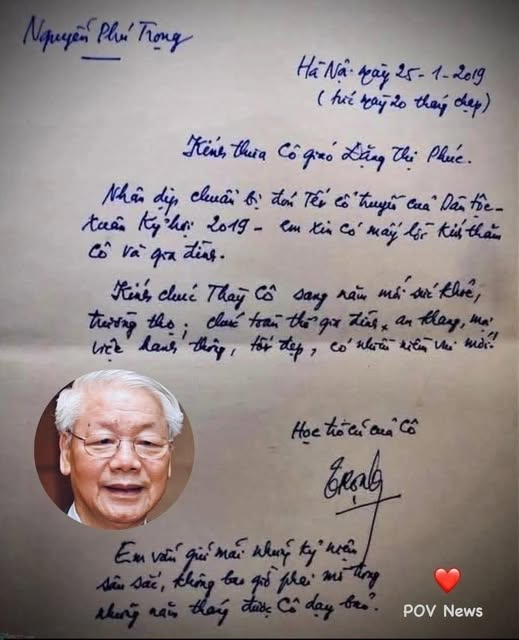 Nguyễn Phú Trọng
Hà Nội ngày 25-1-2019
(tức ngày 20 tháng chạp)
Kính thưa Cô giáo Đặng Thị Phúc.
Nhân dịp chuẩn bị đón Tết cổ truyền của Dân tộc -
Xuân Kỷ hợi 2019 - em xin có mấy lời kính thăm
Cô và gia đình.
Kính chúc Thầy Cô sang năm mới sức khoẻ,
trường thọ; chúc toàn thể gia đình an khang, mọi
việc hanh thông, tốt đẹp, có nhiều niềm vui mới!
Học trò cũ của Cô
Trọng
Em vẫn giữ mãi những kỷ niệm
sâu sắc, không bao giờ phai mờ trong
những năm tháng được Cô dạy bảo.
POV News